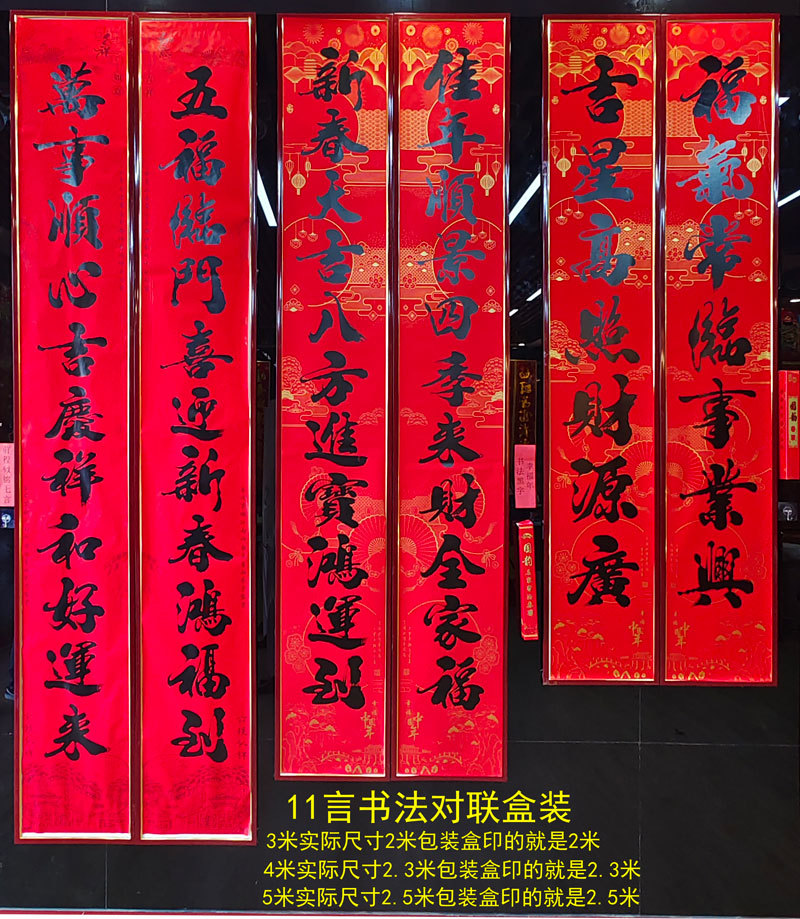 五福臨門喜迎新春鴻福到
萬事順心吉慶祥和好運来
佳年順景四季来財全家福
新春大吉八方進寶鴻運到
福氣常臨事業興
吉星高照財源廣
幸福年
书法黑字
11言书法对联盒装
3米实际尺寸2米包装盒印的就是2米
4米实际尺寸2.3米包装盒印的就是2.3米
5米实际尺寸2.5米包装盒印的就是2.5米